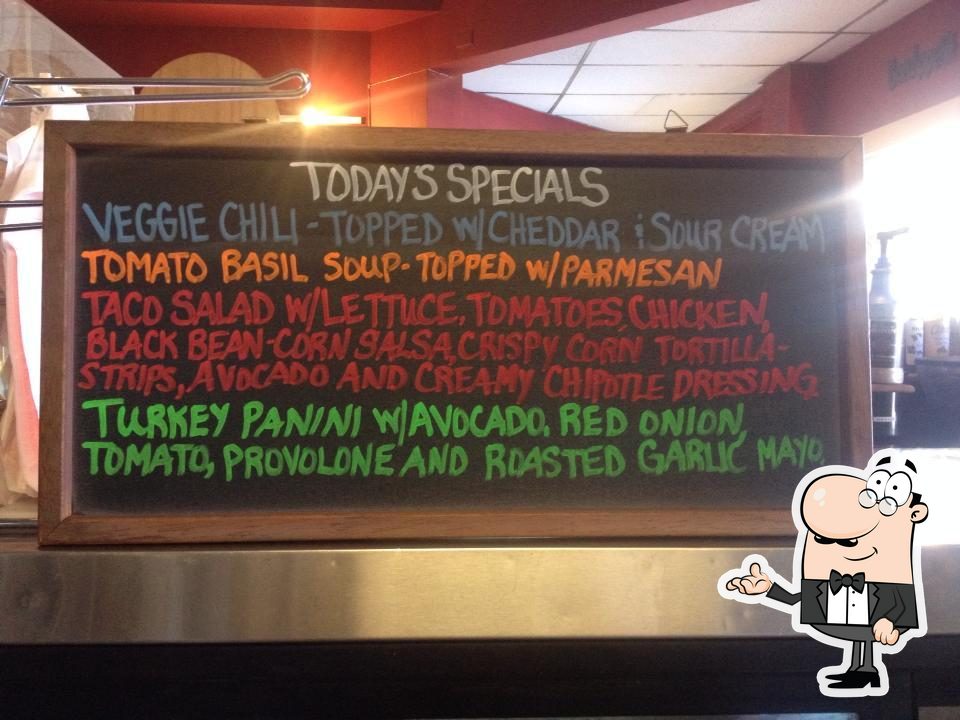 TODAY'S SPECIALS
VEGGIE CHILI - TOPPED W/CHEDDAR & SOUR CREAM
TOMATO BASIL SOUP - TOPPED W/PARMESAN
TACO SALAD W/LETTUCE, TOMATOES, CHICKEN,
BLACK BEAN-CORN SALSA, CRISPY CORN TORTILLA-
STRIPS, AVOCADO AND CREAMY CHIPOTLE DRESSING.
TURKEY PANINI W/AVOCADO, RED ONION,
TOMATO, PROVOLONE AND ROASTED GARLIC MAYO.